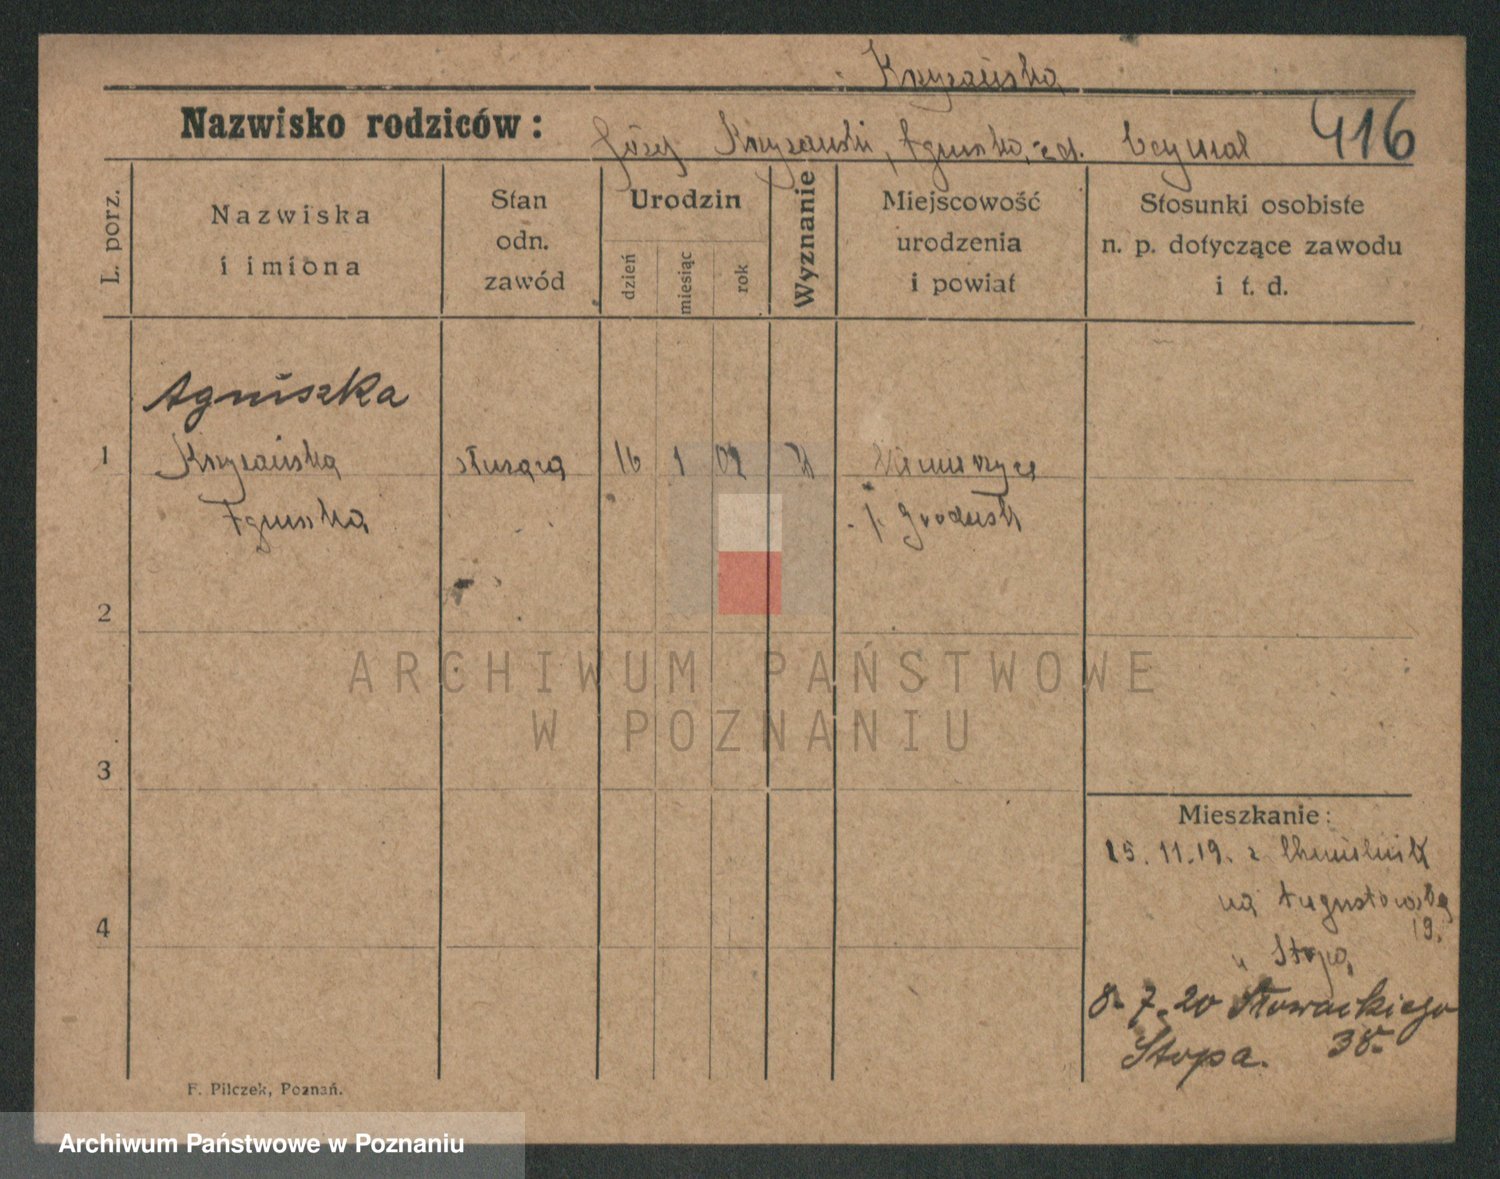 Krzyżańska
Nazwisko rodziców: Józef Krzyżański, Agnieszka, z d. 416
L. porz.
Nazwiska
i imiona
Stan
odn.
zawód
Urodzin
dzień
miesiąc
rok
Wyznanie
Miejscowość
urodzenia
i powiat
Stosunki osobiste
n. p. dotyczące zawodu
i t. d.
Agniszka
1 Krzyżańska służąca 16 1 02 k
p. Grodzisk
2
3
4
ARCHIWUM PAŃSTWOWE
W POZNANIU
Mieszkanie:
25.11.19. z
na Augustowską
19.
u Stopa
8.7.20 Słowackiego
Stopa. 38.
F. Pilczek, Poznań.
Archiwum Państwowe w Poznaniu